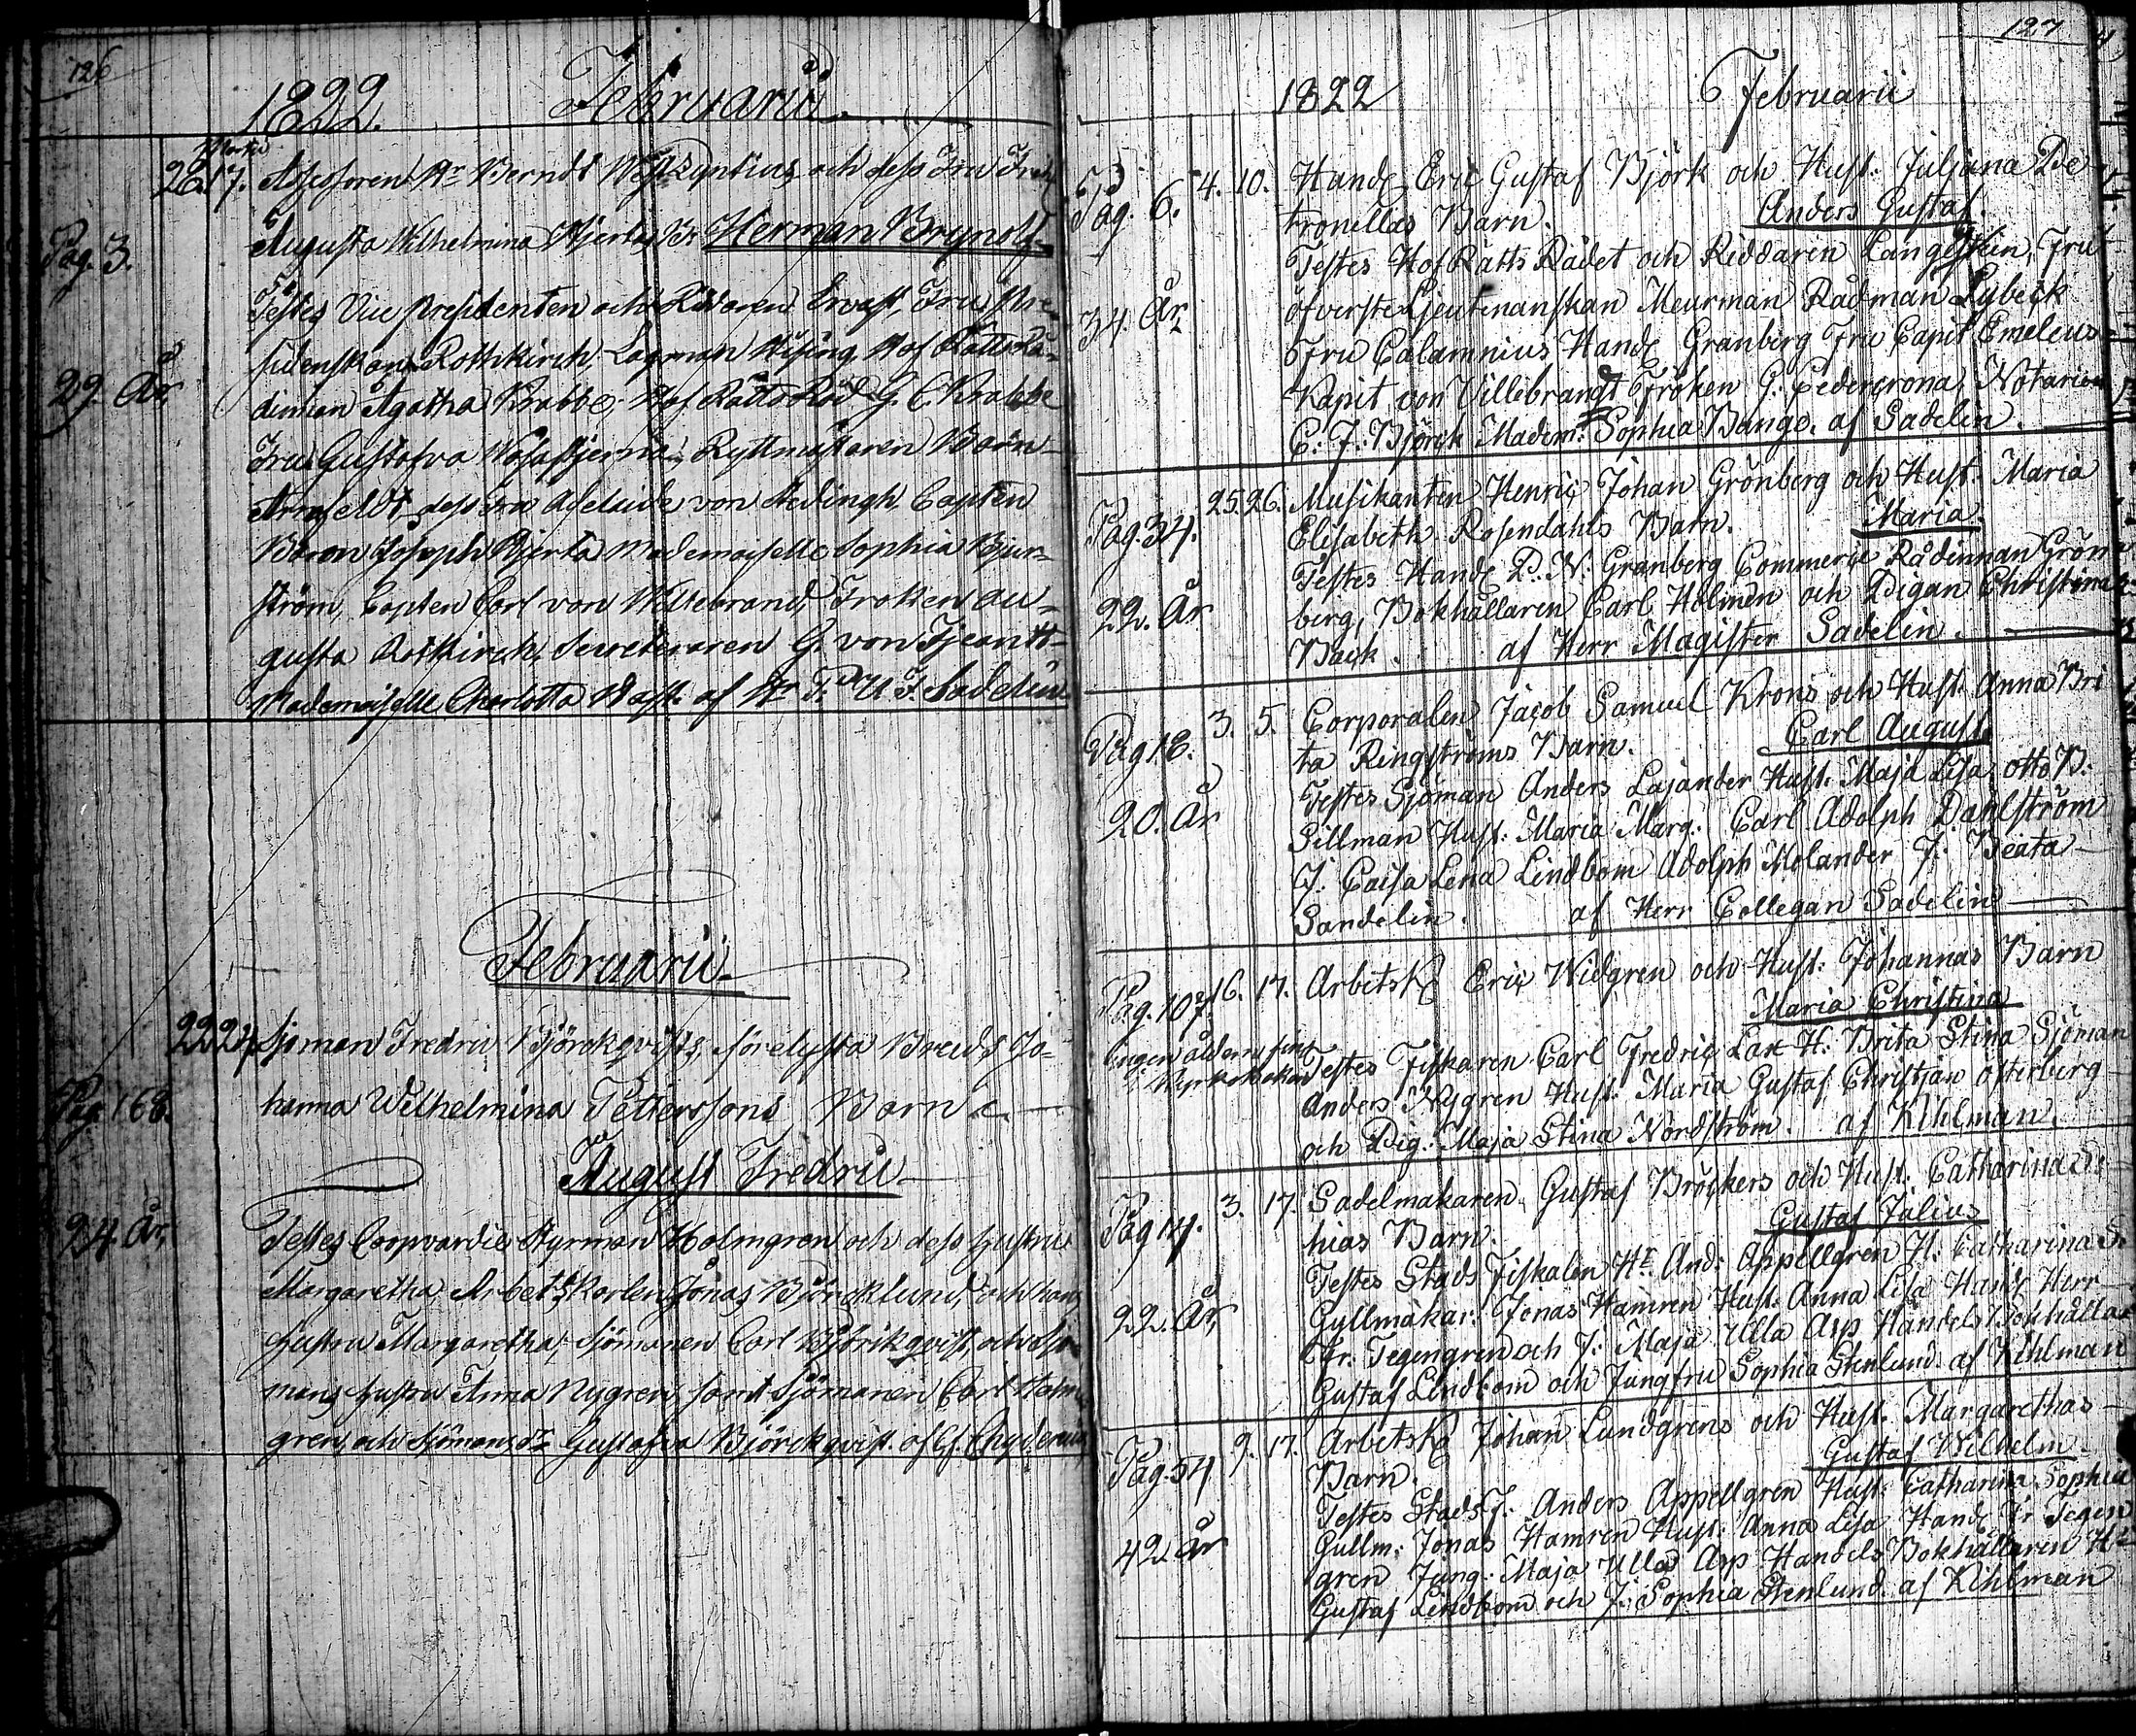 126
1822. Februarii
Martii
26. 17. Assessoren Hr Berndt och dess Fru
Augusta Wilhelmina Hjertas Br. Herman Brynolf
Pag. 3.
Testes Vice presidenten och Riddaren Fru Pre-
sidenskan Rothkirch, Lagman Hising Hof Rätts Rå-
29. År dinnan Agatha Krabbe, Hof Rätts Råd G. C. Krabbe
Fru Gustafva Ryttmästaren Baron
Armfeldt dess Fru Adelaide von Hedingh Capten
Baron Joseph Hjerta Mademoiselle Sophia Bjur-
ström, Capten Carl von Willebrand, Fröken Au-
gusta Rotkirch, Secreteraren G. von
Mademoiselle Charlotta Wasst. af Hr P. U. F. Sadelin
Februarii
22 24 Sjöman Fredric Björckqvists, förelysta Bruds Jo-
Pag. 168. hanna Wilhelmina Petterssons Barn
August Fredric
24. År. Testes Coopvardie Styrman Holmgren och dess hustru
Margaretha, Arbets Karlen Jonas Björcklund, och hans
hustru Margaretha, Sjömanen Carl Björkqvist, och Sjö-
mans hustru Anna Nygren, samt Sjömanen Carl Holm-
gren, och Sjömans dr Gustafva Björckqvist. af Cf. Chydenius
127
1822 Februarii
Pag. 6. 4. 10. Handl Eric Gustaf Björk och Hust: Juliana Pe
tronellas Barn. Anders Gustaf.
Testes Hof Rätts Rådet och Riddaren Langenstein, Fru
34. År öfverste Lieutenanskan Meurman Rådman Lybeck
Fru Calamnius Handl Granberg Fru Capit Emeleus
Kapit von Villebrandt Fröken G: Cedercrona, Notarien
C: J: Björck Madem: Sophia Bange. af Sadelin.
Pag. 34. 25 26. Musikanten Henric Johan Grönberg och Hust. Maria
Elisabeth Rosendahls Barn. Maria.
Testes Handl P. N. Granberg Commerce Rådinnan Grön
22. År berg, Bokhållaren Carl Holmén och Pigan Christina
Back. af Herr Magister Sadelin.
Pag 18. 3. 5. Corporalen Jacob Samuel Krons och Hust. Anna Bri
ta Ringströms Barn. Carl August.
Testes Sjöman Anders Lajander Hust: Maja Lisa, otto B.
20. År Sillman Hust: Maria Marg: Carl Adolph Dahlström
J: Caisa Lena Lindbom Adolph Molander J: Beata
Sandelin. af Herr Collegan Sadelin
Pag. 107. 16. 17. Arbetsk Eric Widgren och Hust: Johannas Barn
Maria Christina
ingen ålder finns
i Kyrkoboken Testes Fiskaren Carl Fredric Lax H. Brita Stina Sjöman
Anders Nygren Hust: Maria Gustaf Christian österberg
och Pig: Maja Stina Nordström. af Kihlman.
Pag 14. 3. 17. Sadelmakaren Gustaf Bröckers och Hust: Catharina So
hias Barn. Gustaf Julius
Testes Stads Fiskalen Hr And: Appellgren H: Catharina S.
22. År, Gullmakar: Jonas Hamren Hust: Anna Lisa Handl Herr
Fr: Tegengren och J: Maja Ulla Asp Handels Bokhållar
Gustaf Lindbom och Jungfru Sophia Stenlund. af Kihlman
Pag. 54 9. 17. Arbetsk Johan Lundgrens och Hust. Margarethas
Barn. Gustaf Wilhelm.
Testes Stads F. Anders Appellgren Hust: Catharina Sophia
42 år Gullm: Jonas Hamren Hust: Anna Lisa Handl Fr Tegen
gren Jung: Maja Ulla Asp Handels Bokhållaren Hr
Gustaf Lindbom och J: Sophia Stenlund. af Kihlman